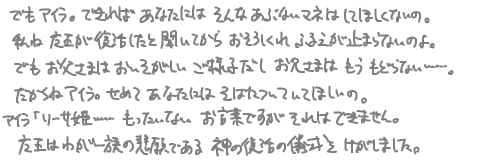 でもアイラ。できれば あなたには そんな あぶないマネは してほしくないの。
私ね 魔王が復活したと聞いてから おそろしくれ ふるえが止まらないのよ。
でもお父さまは おいそがしい ご様子だし お父さまは もう もどらない……。
だからね アイラ。せめて あなたには そばについていてほしいの。
アイラ「リーサ姫…… もったいない お言葉ですが それは できません。
魔王はわが一族の悲願である 神の復活の儀式を けがしました。